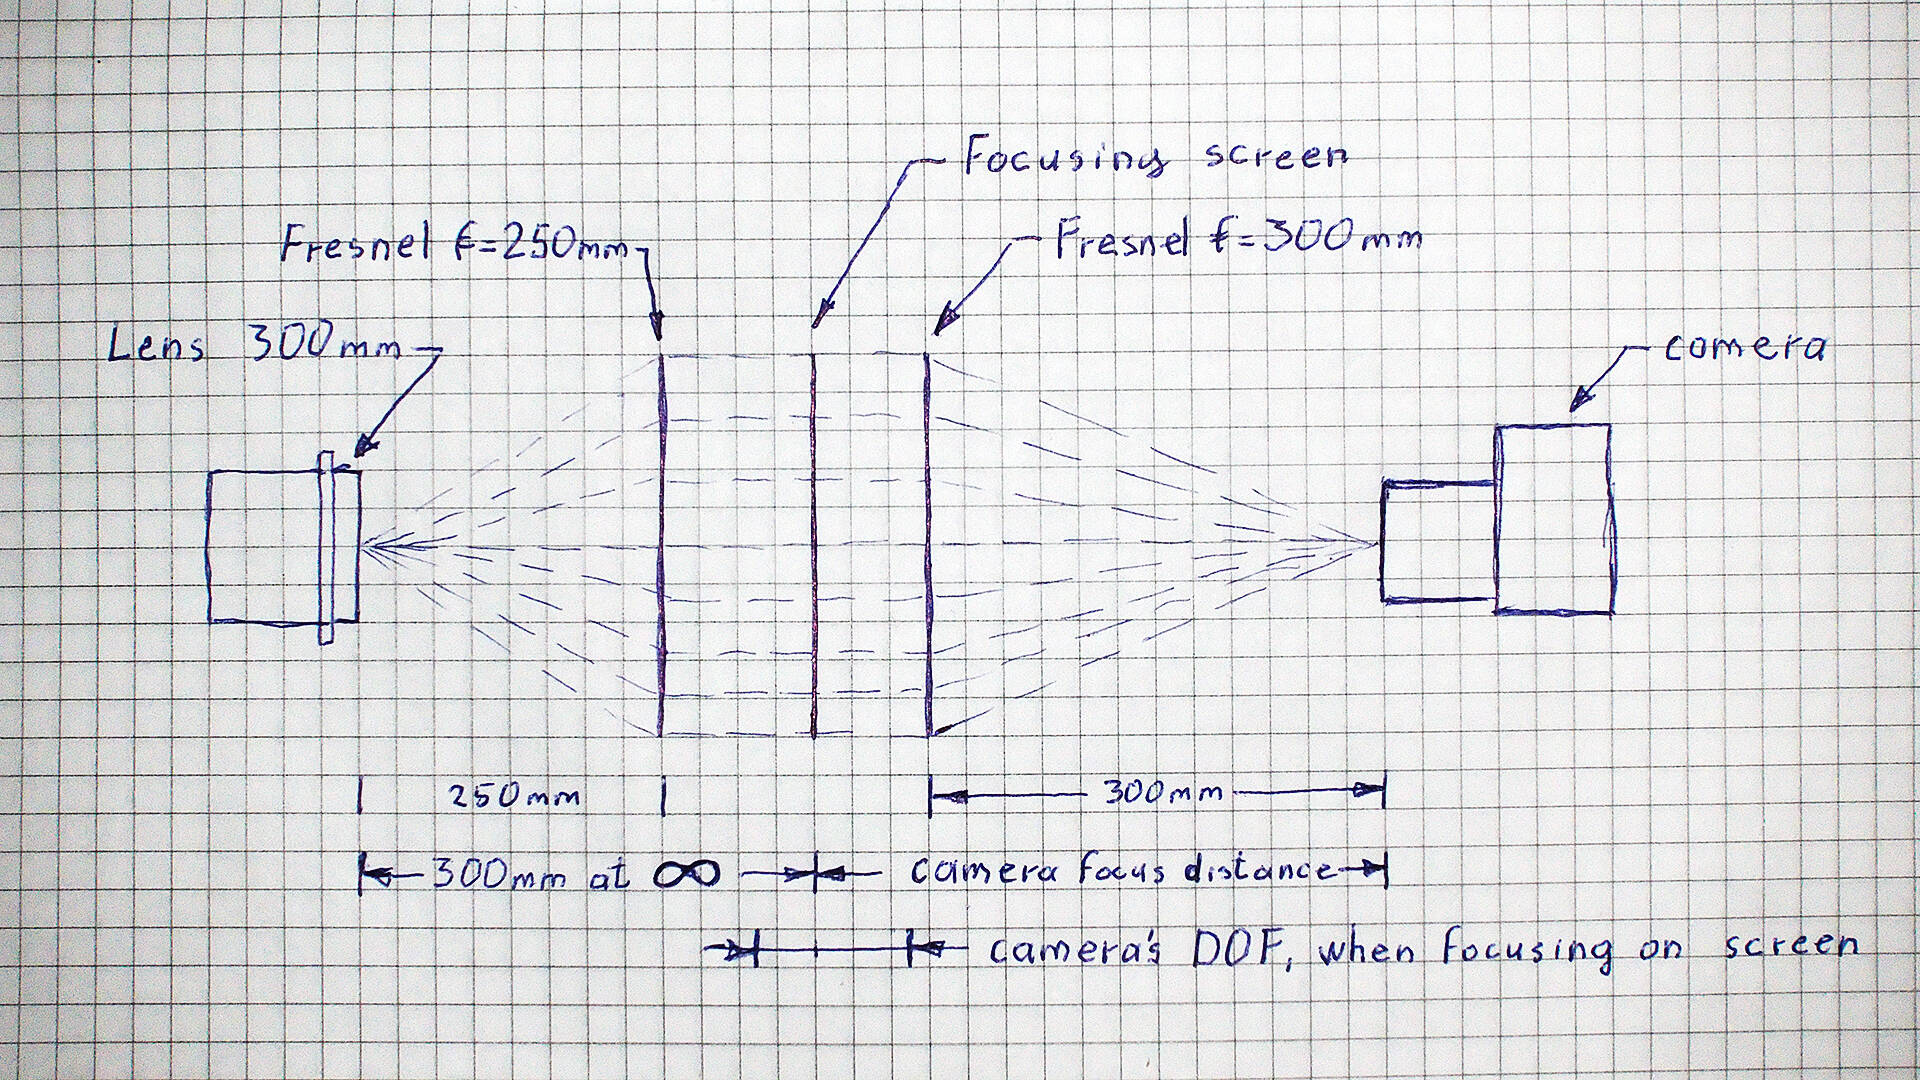 Focusing screen
Fresnel f=250mm
Fresnel f=300mm
Lens 300mm
camera
250mm
300mm
300mm at ∞
camera focus distance
camera's DOF, when focusing on screen